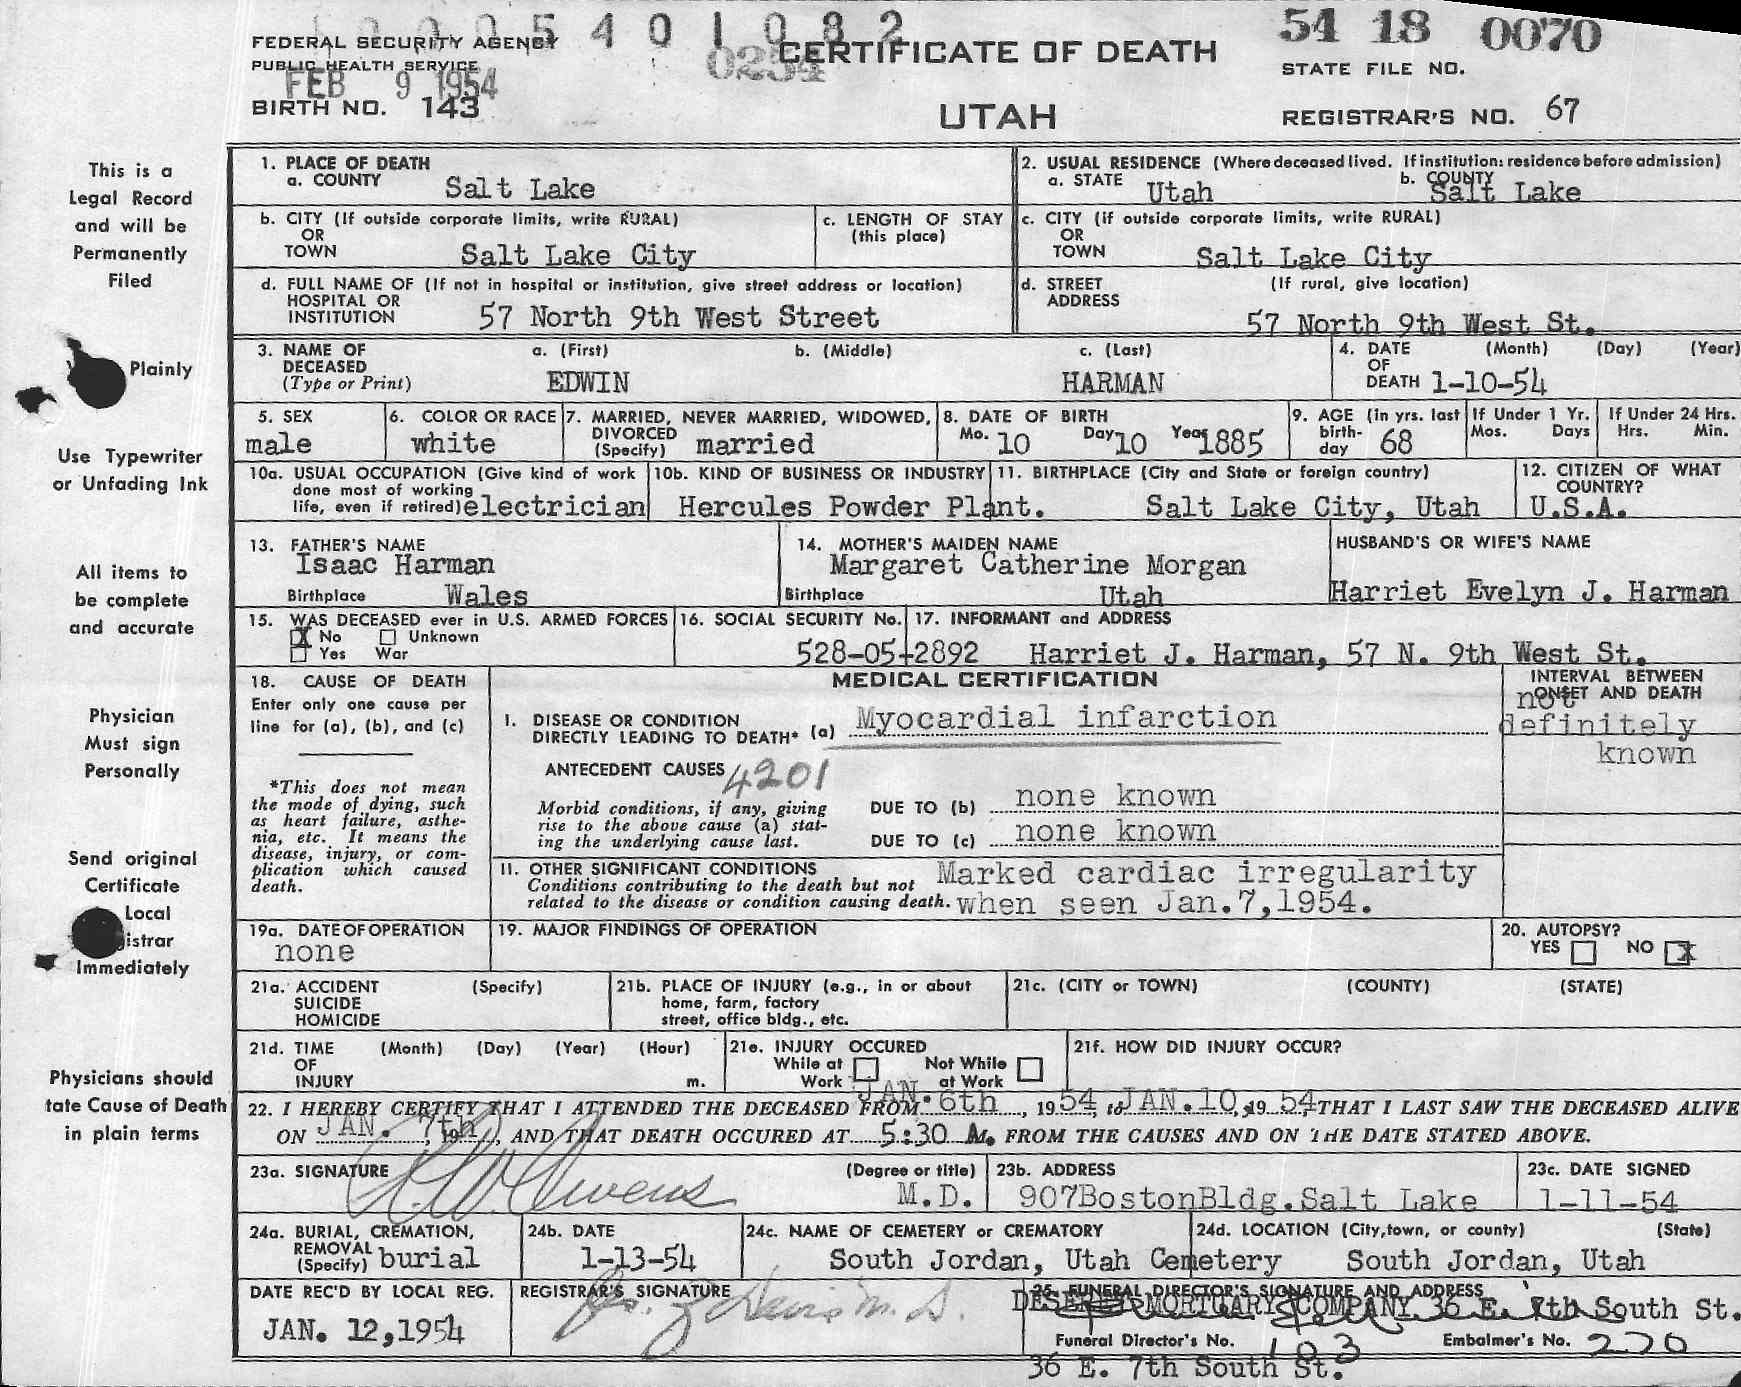 54 18 0070
FEDERAL SECURITY AGENCY
PUBLIC HEALTH SERVICE
FEB 9 1954
BIRTH NO. 143
CERTIFICATE OF DEATH
UTAH
STATE FILE NO.
REGISTRAR'S NO. 67
This is a
Legal Record
and will be
Permanently
Filed
Plainly
Use Typewriter
or Unfading Ink
All items to
be complete
and accurate
Physician
Must sign
Personally
Send original
Certificate
Local
istrar
Immediately
Physicians should
tate Cause of Death
in plain terms
1. PLACE OF DEATH
a. COUNTY Salt Lake
2. USUAL RESIDENCE (Where deceased lived. If institution: residence before admission)
a. STATE Utah b. COUNTY Salt Lake
b. CITY (If outside corporate limits, write RURAL)
OR
TOWN Salt Lake City
c. LENGTH OF STAY
(this place)
c. CITY (if outside corporate limits, write RURAL)
OR
TOWN Salt Lake City
d. FULL NAME OF (If not in hospital or institution, give street address or location)
HOSPITAL OR
INSTITUTION 57 North 9th West Street
d. STREET (If rural, give location)
ADDRESS
57 North 9th West St.
3. NAME OF a. (First) b. (Middle) c. (Last)
DECEASED
(Type or Print) EDWIN HARMAN
4. DATE (Month) (Day) (Year)
OF
DEATH 1-10-54
5. SEX
male
6. COLOR OR RACE
white
7. MARRIED, NEVER MARRIED, WIDOWED,
DIVORCED
(Specify) married
8. DATE OF BIRTH
Mo. 10 Day 10 Year 1885
9. AGE (in yrs. last
birth-
day 68
If Under 1 Yr.
Mos. Days
If Under 24 Hrs.
Hrs. Min.
10a. USUAL OCCUPATION (Give kind of work
done most of working
life, even if retired) electrician
10b. KIND OF BUSINESS OR INDUSTRY
Hercules Powder Plant.
11. BIRTHPLACE (City and State or foreign country)
Salt Lake City, Utah
12. CITIZEN OF WHAT
COUNTRY?
U.S.A.
13. FATHER'S NAME
Isaac Harman
Birthplace Wales
14. MOTHER'S MAIDEN NAME
Margaret Catherine Morgan
Birthplace Utah
HUSBAND'S OR WIFE'S NAME
Harriet Evelyn J. Harman
15. WAS DECEASED ever in U.S. ARMED FORCES
X No Unknown
Yes War
16. SOCIAL SECURITY No.
528-05-2892
17. INFORMANT and ADDRESS
Harriet J. Harman, 57 N. 9th West St.
18. CAUSE OF DEATH
Enter only one cause per
line for (a), (b), and (c)
*This does not mean
the mode of dying, such
as heart failure, asthe-
nia, etc. It means the
disease, injury, or com-
plication which caused
death.
MEDICAL CERTIFICATION
INTERVAL BETWEEN
ONSET AND DEATH
not
definitely
known
I. DISEASE OR CONDITION
DIRECTLY LEADING TO DEATH* (a) Myocardial infarction
ANTECEDENT CAUSES 4201
Morbid conditions, if any, giving
rise to the above cause (a) stat-
ing the underlying cause last.
DUE TO (b) none known
DUE TO (c) none known
II. OTHER SIGNIFICANT CONDITIONS
Conditions contributing to the death but not
related to the disease or condition causing death.
Marked cardiac irregularity
when seen Jan.7,1954.
19a. DATE OF OPERATION
none
19. MAJOR FINDINGS OF OPERATION
20. AUTOPSY?
YES NO X
21a. ACCIDENT (Specify)
SUICIDE
HOMICIDE
21b. PLACE OF INJURY (e.g., in or about
home, farm, factory
street, office bldg., etc.
21c. (CITY or TOWN) (COUNTY) (STATE)
21d. TIME (Month) (Day) (Year) (Hour)
OF
INJURY m.
21e. INJURY OCCURED
While at Not While
Work at Work
21f. HOW DID INJURY OCCUR?
22. I HEREBY CERTIFY THAT I ATTENDED THE DECEASED FROM JAN. 6th, 1954, to JAN.10, 1954 THAT I LAST SAW THE DECEASED ALIVE
ON JAN. 7th, 19, AND THAT DEATH OCCURED AT 5:30 A.M. FROM THE CAUSES AND ON THE DATE STATED ABOVE.
23a. SIGNATURE (Degree or title)
Owens M.D.
23b. ADDRESS
907BostonBldg.Salt Lake
23c. DATE SIGNED
1-11-54
24a. BURIAL, CREMATION,
REMOVAL
(Specify) burial
24b. DATE
1-13-54
24c. NAME OF CEMETERY or CREMATORY
South Jordan, Utah Cemetery
24d. LOCATION (City,town, or county) (State)
South Jordan, Utah
DATE REC'D BY LOCAL REG.
JAN. 12,1954
REGISTRAR'S SIGNATURE
25. FUNERAL DIRECTOR'S SIGNATURE AND ADDRESS
DESERET MORTUARY COMPANY 36 E. 7th South St.
Funeral Director's No. 103 Embalmer's No. 270
36 E. 7th South St.